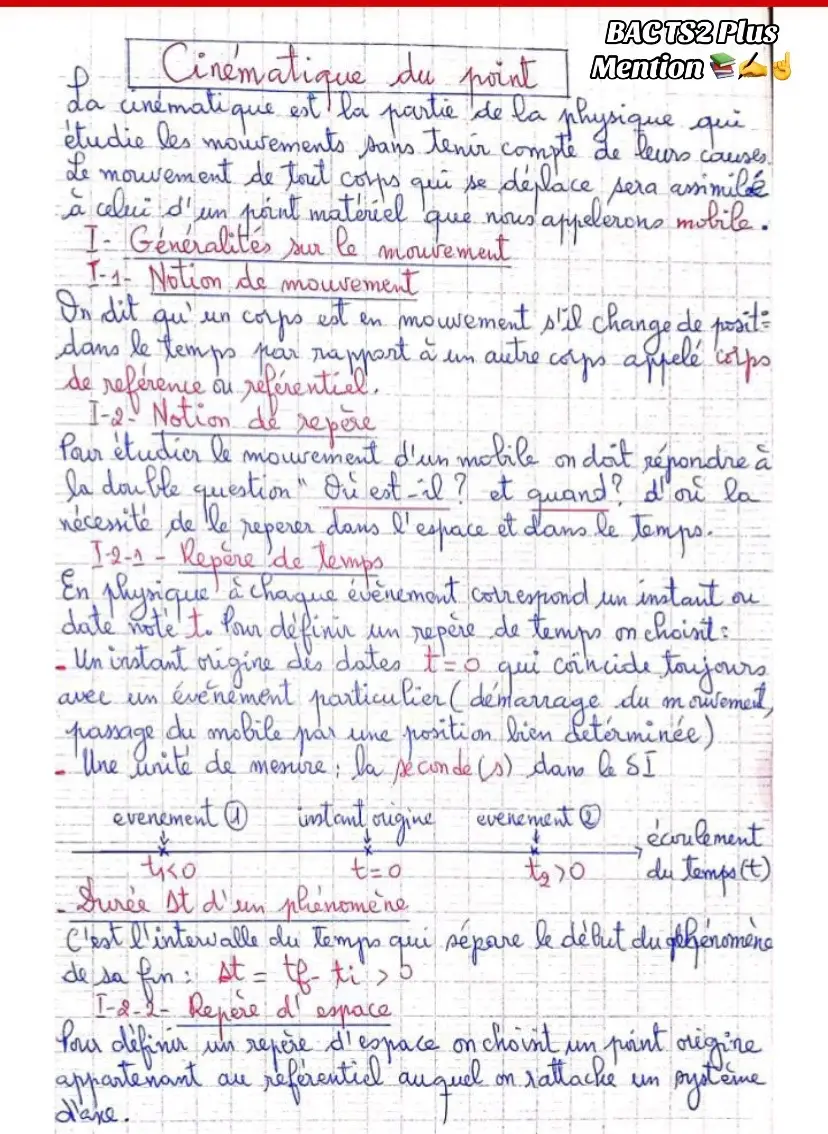 BACTS2 Plus
Mention 📚✍️☝️
Cinématique du point
La cinématique est la partie de la physique qui
étudie les mouvements sans tenir compte de leurs causes.
Le mouvement de tout corps qui se déplace sera assimilé
à celui d'un point matériel que nous appelerons mobile.
I- Généralités sur le mouvement
I-1- Notion de mouvement
On dit qu'un corps est en mouvement s'il change de posit°
dans le temps par rapport à un autre corps appelé corps
de reférence ou référentiel.
I-2- Notion de repère
Pour étudier le mouvement d'un mobile on doit répondre à
la double question " Où est-il ? et quand? d'où la
nécessité de le reperer dans l'espace et dans le temps.
I-2-1 - Repère de temps
En physique à chaque évènement correspond un instant ou
date noté t. Pour définir un repère de temps on choisit :
- Un instant origine des dates t=0 qui coïncide toujours
avec un événement particulier (démarrage du mouvement,
passage du mobile par une position bien déterminée)
- Une unité de mesure : la seconde (s) dans le SI
evenement ① instant origine evenement ②
écoulement
du temps (t)
t₁<0 t=0 t₂>0
- Durée Δt d'un phénomène
C'est l'intervalle du temps qui sépare le début du phénomène
de sa fin : Δt = tf - ti > 0
I-2-2- Repère d'espace
Pour définir un repère d'espace on choisit un point origine
appartenant au référentiel auquel on rattache un système
d'axe.